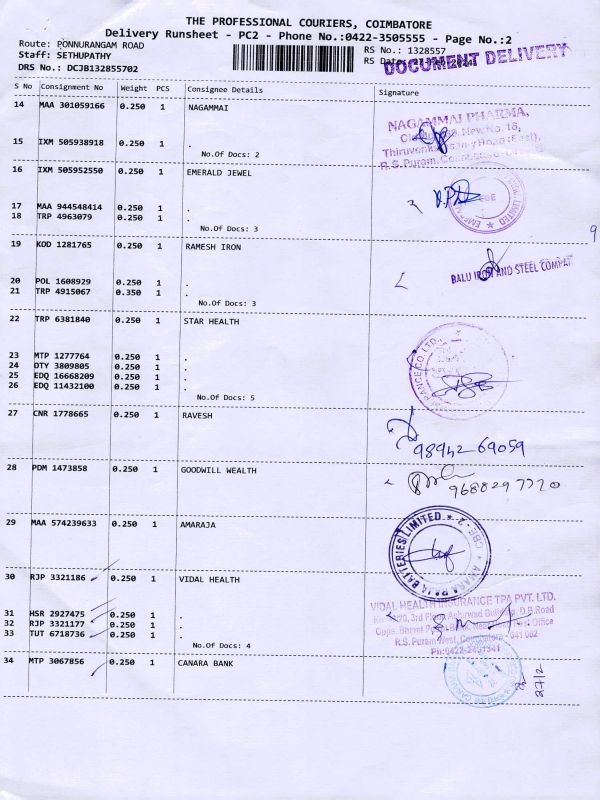 THE PROFESSIONAL COURIERS, COIMBATORE
Delivery Runsheet - PC2 - Phone No.:0422-3505555 - Page No.:2
Route: PONNURANGAM ROAD
RS No.: 1328557
Staff: SETHUPATHY
RS Date:
DOCUMENT DELIVERY
DRS No.: DCJB132855702
S No Consignment No Weight PCS Consignee Details Signature
14 MAA 301059166 0.250 1 NAGAMMAI
NAGAMMAI PHARMA,
New No. 18,
R.S. Puram,
15 IXM 505938918 0.250 1 .
No.Of Docs: 2
16 IXM 505952550 0.250 1 EMERALD JEWEL
17 MAA 944548414 0.250 1 .
18 TRP 4963079 0.250 1 .
No.Of Docs: 3
9
19 KOD 1281765 0.250 1 RAMESH IRON
BALU IRON AND STEEL COMPA
20 POL 1608929 0.250 1 .
21 TRP 4915067 0.350 1 .
No.Of Docs: 3
22 TRP 6381840 0.250 1 STAR HEALTH
23 MTP 1277764 0.250 1 .
24 DTY 3809805 0.250 1 .
25 EDQ 16668209 0.250 1 .
26 EDQ 11432100 0.250 1 .
No.Of Docs: 5
27 CNR 1778665 0.250 1 RAVESH
98942 69059
28 PDM 1473858 0.250 1 GOODWILL WEALTH
9688297720
29 MAA 574239633 0.250 1 AMARAJA
AMARA RAJA BATTERIES LIMITED * CBE - 2 *
30 RJP 3321186 0.250 1 VIDAL HEALTH
VIDAL HEALTH INSURANCE TPA PVT. LTD.
3rd Floor, Ashirwad Building, D.B.Road
31 HSR 2927475 0.250 1 .
32 RJP 3321177 0.250 1 .
33 TUT 6718736 0.250 1 .
R.S. Puram West, Coimbatore - 641 002
No.Of Docs: 4
Ph:0422-2491341
34 MTP 3067856 0.250 1 CANARA BANK
27/2